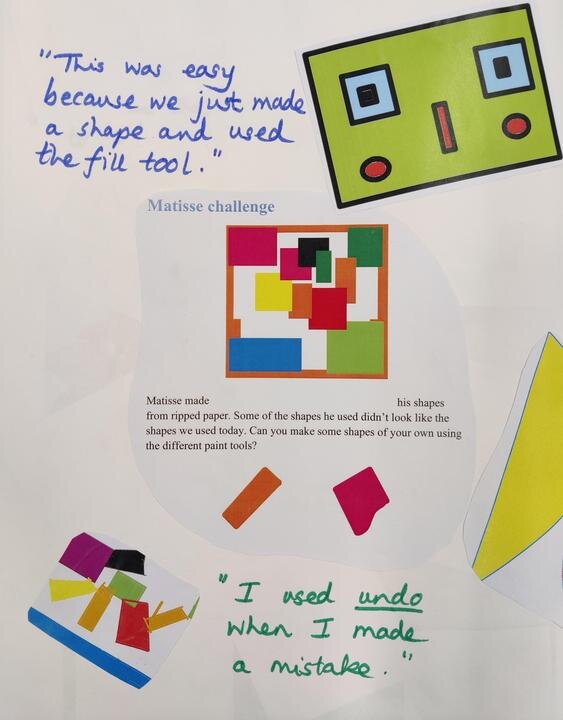 "This was easy
because we just made
a shape and used
the fill tool."
Matisse challenge
Matisse made his shapes
from ripped paper. Some of the shapes he used didn't look like the
shapes we used today. Can you make some shapes of your own using
the different paint tools?
"I used undo
when I made
a mistake."